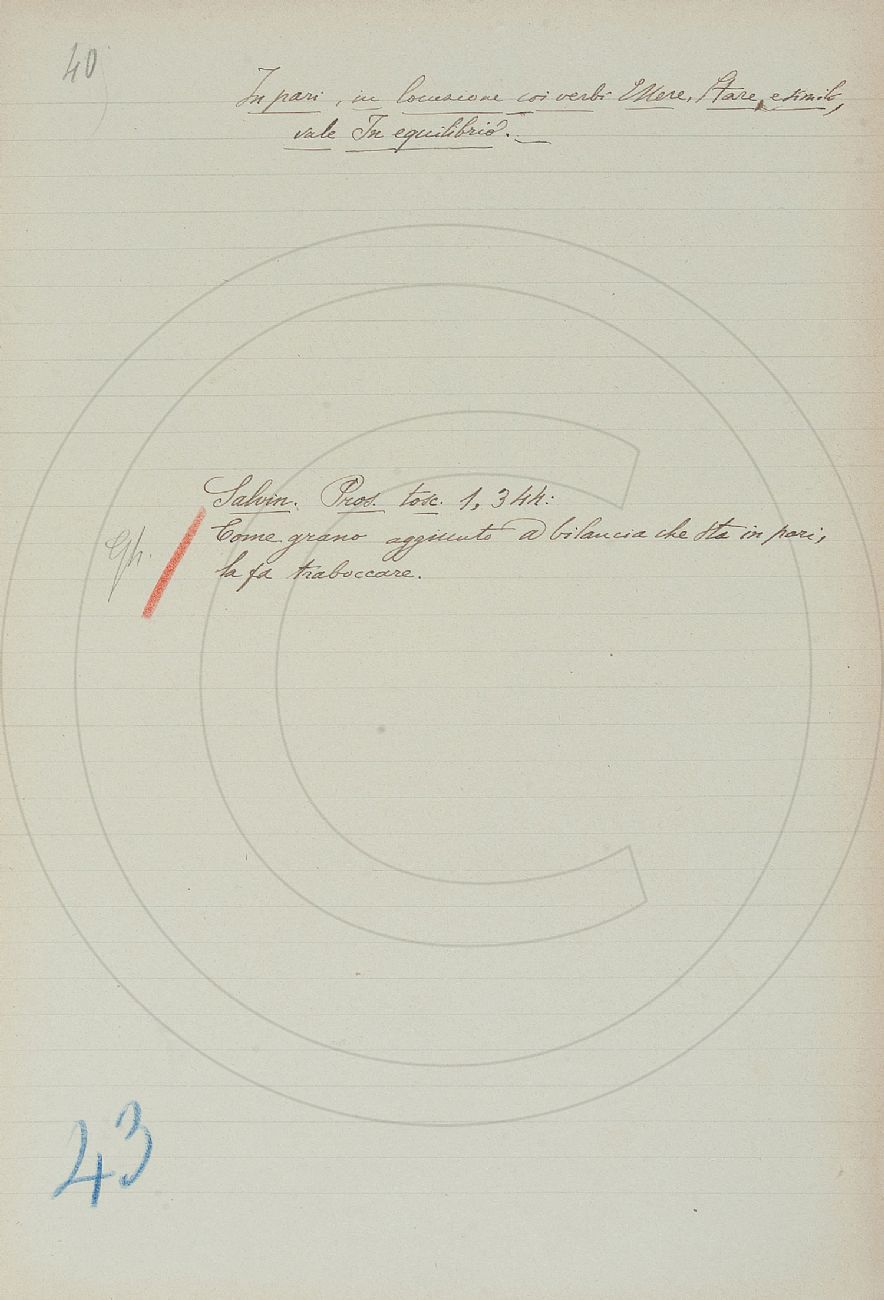 40
In pari, in locuzione coi verbi Essere, Stare, e simili,
vale In equilibrio. —
Salvin. Pros. tosc. 1, 344:
Come grano aggiunto a bilancia che sta in pari,
Gh.
la fa traboccare.
43